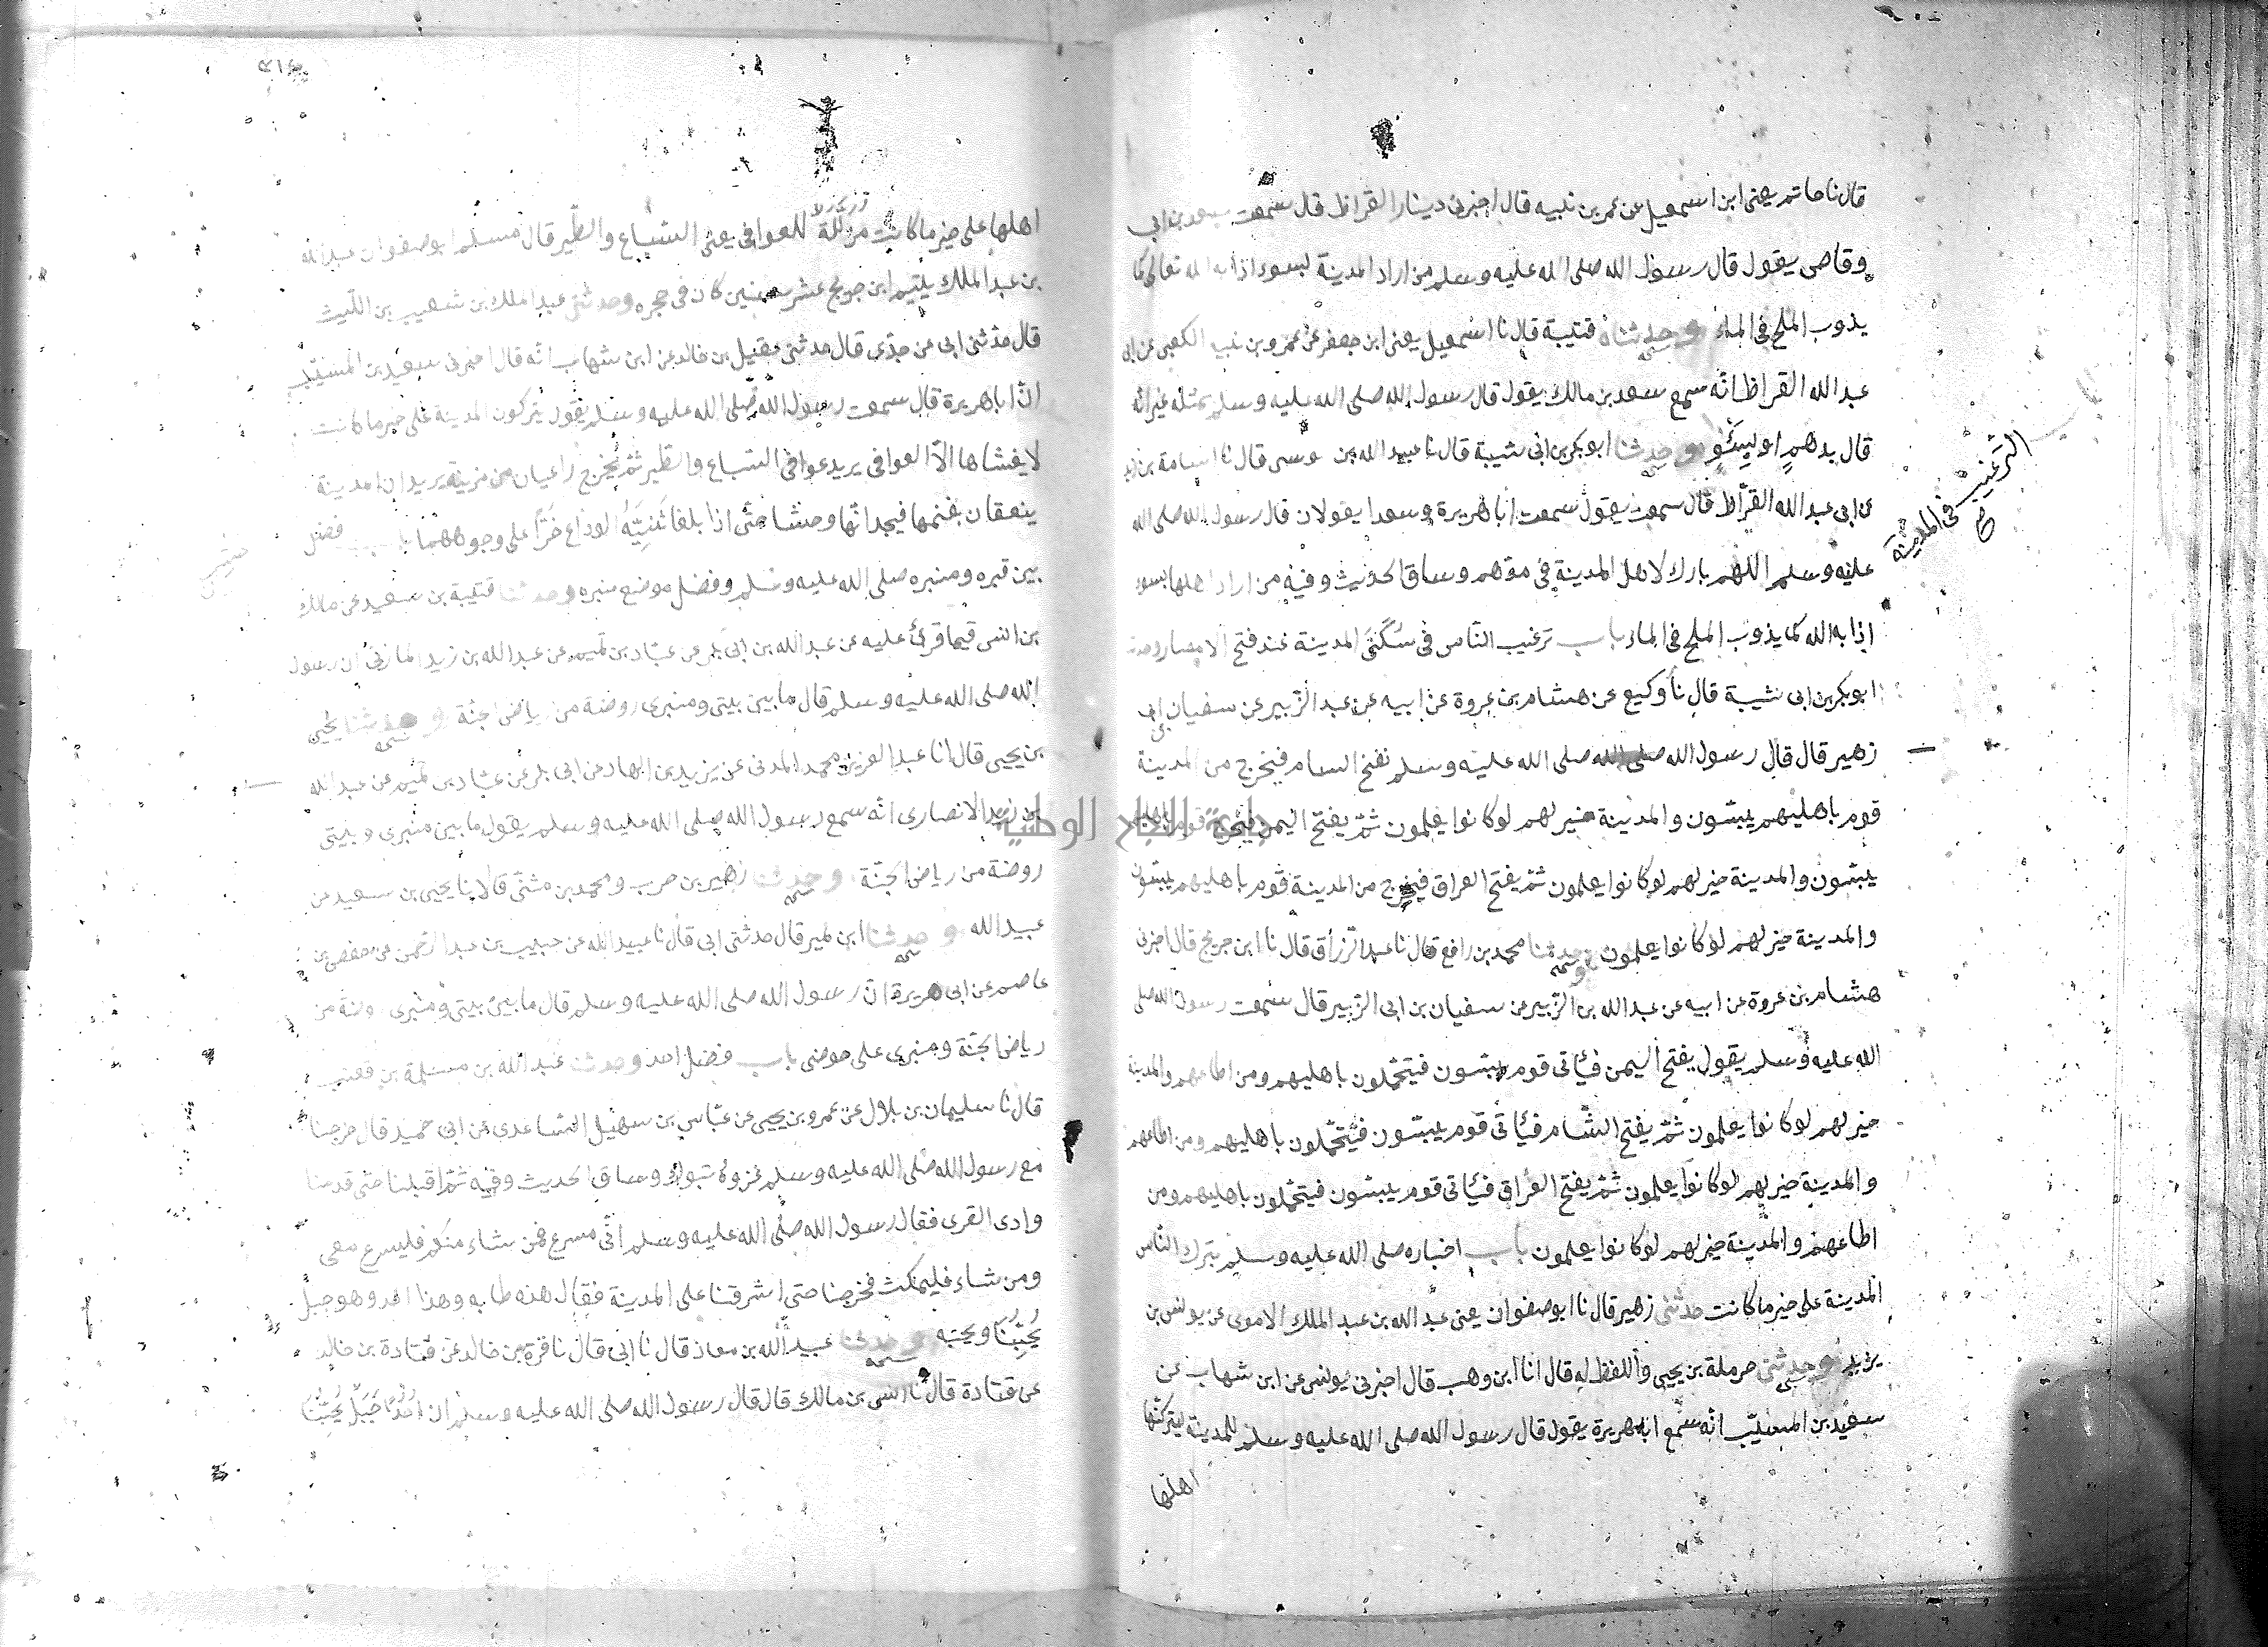 قال نا حاتم يعنى ابن اسمعيل عن عمر بن نبيه قال اخبرنى دينار القراظ قال سمعت سعد بن ابى
وقاص يقول قال رسول الله صلى الله عليه وسلم من اراد المدينة بسوء اذابه الله تعالى كما
يذوب الملح فى الماء وحدثناه قتيبة قال نا اسمعيل يعنى ابن جعفر عن عمرو بن نبيه الكعبى عن ابى
عبد الله القراظ انه سمع سعد بن مالك يقول قال رسول الله صلى الله عليه وسلم بمثله غير انه
قال بدهم او بسوء وحدثنا ابو بكر بن ابى شيبة قال نا عبيد الله بن موسى قال نا اسامة بن زيد
عن ابى عبد الله القراظ قال سمعت يقول سمعت ابا هريرة وسعدا يقولان قال رسول الله صلى الله
عليه وسلم اللهم بارك لاهل المدينة فى مدهم وساق الحديث وفيه من اراد اهلها بسوء
اذابه الله كما يذوب الملح فى الماء باب ترغيب الناس فى سكنى المدينة عند فتح الامصار وحدثنا
ابو بكر بن ابى شيبة قال نا وكيع عن هشام بن عروة عن ابيه عن عبد الله الزبير عن سفيان ابى
زهير قال قال رسول الله صلى الله صلى الله عليه وسلم تفتح الشام فيخرج من المدينة
قوم باهليهم يبسون والمدينة خير لهم لو كانوا يعلمون ثم يفتح اليمن فيخرج قوم باهليهم
يبسون والمدينة خير لهم لو كانوا يعلمون ثم يفتح العراق فيخرج من المدينة قوم باهليهم يبسون
والمدينة خير لهم لو كانوا يعلمون وحدثنا محمد بن رافع قال نا عبد الرزاق قال نا ابن جريج قال اخبرنى
هشام بن عروة عن ابيه عن عبد الله بن الزبير عن سفيان بن ابى الزبير قال سمعت رسول الله صلى
الله عليه وسلم يقول يفتح اليمن فيأتى قوم يبسون فيتحملون باهليهم ومن اطاعهم والمدينة
خير لهم لو كانوا يعلمون ثم يفتح الشام فيأتى قوم يبسون فيتحملون باهليهم ومن اطاعهم
والمدينة خير لهم لو كانوا يعلمون ثم يفتح العراق فيأتى قوم يبسون فيتحملون باهليهم ومن
اطاعهم والمدينة خير لهم لو كانوا يعلمون باب اخباره صلى الله عليه وسلم بترك الناس
المدينة على خير ما كانت حدثنى زهير قال نا ابو صفوان يعنى عبد الله بن عبد الملك الاموى عن يونس بن
يزيد وحدثنى حرملة بن يحيى واللفظ له قال انا ابن وهب قال اخبرنى يونس عن ابن شهاب عن
سعيد بن المسيب انه سمع ابا هريرة يقول قال رسول الله صلى الله عليه وسلم للمدينة ليتركنها
اهلها
الترغيب فى المدينة
اهلها على خير ما كانت مذللة للعوافى يعنى السباع والطير قال مسلم ابو صفوان عبد الله
بن عبد الملك يتيم ابن جريج عشر سنين كان فى حجره وحدثنى عبد الملك بن شعيب بن الليث
قال حدثنى ابى عن جدى قال حدثنى عقيل بن خالد عن ابن شهاب انه قال اخبرنى سعيد بن المسيب
ان ابا هريرة قال سمعت رسول الله صلى الله عليه وسلم يقول يتركون المدينة على خير ما كانت
لا يغشاها الا العوافى يريد عوافى السباع والطير ثم يخرج راعيان من مزينة يريدان المدينة
ينعقان بغنمها فيجدانها وحشا حتى اذا بلغا ثنية الوداع خرا على وجوههما باب فضل
بين قبره ومنبره صلى الله عليه وسلم وفضل موضع منبره وحدثنا قتيبة بن سعيد عن مالك
بن انس فيما قرئ عليه عن عبد الله بن ابى بكر عن عباد بن تميم عن عبد الله بن زيد المازنى ان رسول
الله صلى الله عليه وسلم قال ما بين بيتى ومنبرى روضة من رياض الجنة وحدثنا يحيى
بن يحيى قال انا عبد العزيز محمد المدنى عن يزيد بن الهاد عن ابى بكر عن عباد بن تميم عن عبد الله
بن زيد الانصارى انه سمع رسول الله صلى الله عليه وسلم يقول ما بين منبرى وبيتى
روضة من رياض الجنة وحدثنا زهير بن حرب ومحمد بن مثنى قالا نا يحيى بن سعيد عن
عبيد الله وحدثنا ابن نمير قال حدثنى ابى قال نا عبيد الله عن خبيب بن عبد الرحمن عن حفص بن
عاصم عن ابى هريرة ان رسول الله صلى الله عليه وسلم قال ما بين بيتى ومنبرى روضة من
رياض الجنة ومنبرى على حوضى باب فضل احد وحدثنا عبد الله بن مسلمة بن قعنب
قال نا سليمان بن بلال عن عمرو بن يحيى عن عباس بن سهيل الساعدى عن ابى حميد قال خرجنا
مع رسول الله صلى الله عليه وسلم غزوة تبوك وساق الحديث وفيه ثم اقبلنا حتى قدمنا
وادى القرى فقال رسول الله صلى الله عليه وسلم انى مسرع فمن شاء منكم فليسرع معى
ومن شاء فليمكث فخرجنا حتى اشرفنا على المدينة فقال هذه طابه وهذا احد وهو جبل
يحبنا ونحبه وحدثنا عبيد الله بن معاذ قال نا ابى قال نا قرة بن خالد عن قتادة بن خالد
عن قتادة قال نا انس بن مالك قال قال رسول الله صلى الله عليه وسلم ان احدا جبل يحبنا
جامعة النجاح الوطنية